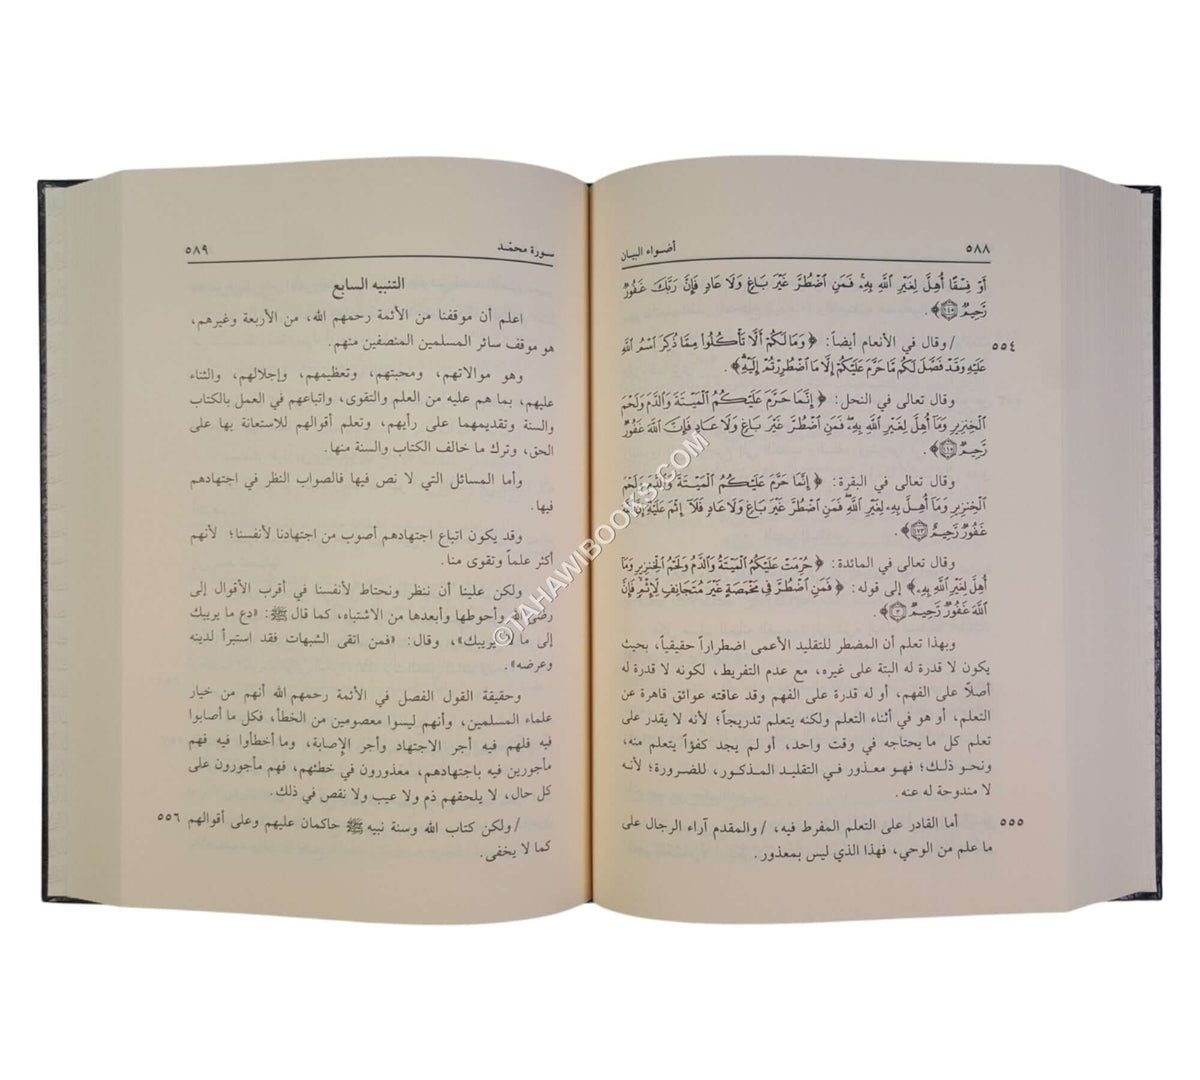 ٥٨٨ أضواء البيان
أَوْ فِسْقًا أُهِلَّ لِغَيْرِ اللَّهِ بِهِۦ فَمَنِ اضْطُرَّ غَيْرَ بَاغٍ وَلَا عَادٍ فَإِنَّ رَبَّكَ غَفُورٌ
رَّحِيمٌ ﴿١٤٥﴾ .
٥٥٤ / وقال في الأنعام أيضاً: ﴿ وَمَا لَكُمْ أَلَّا تَأْكُلُوا مِمَّا ذُكِرَ اسْمُ اللَّهِ
عَلَيْهِ وَقَدْ فَصَّلَ لَكُم مَّا حَرَّمَ عَلَيْكُمْ إِلَّا مَا اضْطُرِرْتُمْ إِلَيْهِ﴾ .
وقال تعالى في النحل: ﴿ إِنَّمَا حَرَّمَ عَلَيْكُمُ الْمَيْتَةَ وَالدَّمَ وَلَحْمَ
الْخِنزِيرِ وَمَا أُهِلَّ لِغَيْرِ اللَّهِ بِهِۦ فَمَنِ اضْطُرَّ غَيْرَ بَاغٍ وَلَا عَادٍ فَإِنَّ اللَّهَ غَفُورٌ
رَّحِيمٌ ﴿١١٥﴾ .
وقال تعالى في البقرة: ﴿ إِنَّمَا حَرَّمَ عَلَيْكُمُ الْمَيْتَةَ وَالدَّمَ وَلَحْمَ
الْخِنزِيرِ وَمَا أُهِلَّ بِهِۦ لِغَيْرِ اللَّهِ فَمَنِ اضْطُرَّ غَيْرَ بَاغٍ وَلَا عَادٍ فَلَا إِثْمَ عَلَيْهِ إِنَّ اللَّهَ
غَفُورٌ رَّحِيمٌ ﴿١٧٣﴾ .
وقال تعالى في المائدة: ﴿ حُرِّمَتْ عَلَيْكُمُ الْمَيْتَةُ وَالدَّمُ وَلَحْمُ الْخِنزِيرِ وَمَا
أُهِلَّ لِغَيْرِ اللَّهِ بِهِۦ﴾ إلى قوله: ﴿ فَمَنِ اضْطُرَّ فِي مَخْمَصَةٍ غَيْرَ مُتَجَانِفٍ لِّإِثْمٍ فَإِنَّ
اللَّهَ غَفُورٌ رَّحِيمٌ ﴿٣﴾ .
وبهذا تعلم أن المضطر للتقليد الأعمى اضطراراً حقيقياً، بحيث
يكون لا قدرة له البتة على غيره، مع عدم التفريط، لكونه لا قدرة له
أصلاً على الفهم، أو له قدرة على الفهم وقد عاقته عوائق قاهرة عن
التعلم، أو هو في أثناء التعلم ولكنه يتعلم تدريجاً؛ لأنه لا يقدر على
تعلم كل ما يحتاجه في وقت واحد، أو لم يجد كفؤاً يتعلم منه،
ونحو ذلك؛ فهو معذور في التقليد المذكور، للضرورة؛ لأنه
لا مندوحة له عنه.
٥٥٥ أما القادر على التعلم المفرط فيه، / والمقدم آراء الرجال على
ما علم من الوحي، فهذا الذي ليس بمعذور.
سورة محمّد ٥٨٩
التنبيه السابع
اعلم أن موقفنا من الأئمة رحمهم الله، من الأربعة وغيرهم،
هو موقف سائر المسلمين المنصفين منهم.
وهو موالاتهم، ومحبتهم، وتعظيمهم، وإجلالهم، والثناء
عليهم، بما هم عليه من العلم والتقوى، واتباعهم في العمل بالكتاب
والسنة وتقديمهما على رأيهم، وتعلم أقوالهم للاستعانة بها على
الحق، وترك ما خالف الكتاب والسنة منها.
وأما المسائل التي لا نص فيها فالصواب النظر في اجتهادهم
فيها.
وقد يكون اتباع اجتهادهم أصوب من اجتهادنا لأنفسنا؛ لأنهم
أكثر علماً وتقوى منا.
ولكن علينا أن ننظر ونحتاط لأنفسنا في أقرب الأقوال إلى
رضى الله وأحوطها وأبعدها من الاشتباه، كما قال ﷺ: «دع ما يريبك
إلى ما لا يريبك»، وقال: «فمن اتقى الشبهات فقد استبرأ لدينه
وعرضه».
وحقيقة القول الفصل في الأئمة رحمهم الله أنهم من خيار
علماء المسلمين، وأنهم ليسوا معصومين من الخطأ، فكل ما أصابوا
فيه فلهم فيه أجر الاجتهاد وأجر الإصابة، وما أخطأوا فيه فهم
مأجورين فيه باجتهادهم، معذورون في خطئهم، فهم مأجورون على
كل حال، لا يلحقهم ذم ولا عيب ولا نقص في ذلك.
/ ولكن كتاب الله وسنة نبيه ﷺ حاكمان عليهم وعلى أقوالهم ٥٥٦
كما لا يخفى.
©TAHAWIBOOKS.COM